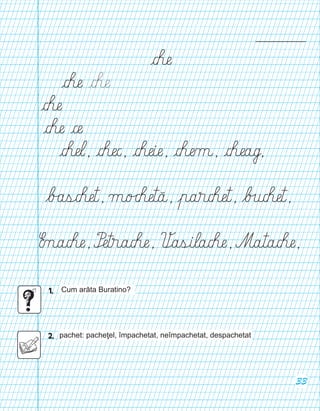 che
che che
che
che ce
chel, chec, cheie, chem, cheag,
baschet, mochetă, parchet, buchet,
Enache, Petrache, Vasilache, Matache,
1. Cum arăta Buratino?
2. pachet: pacheţel, împachetat, neîmpachetat, despachetat
33